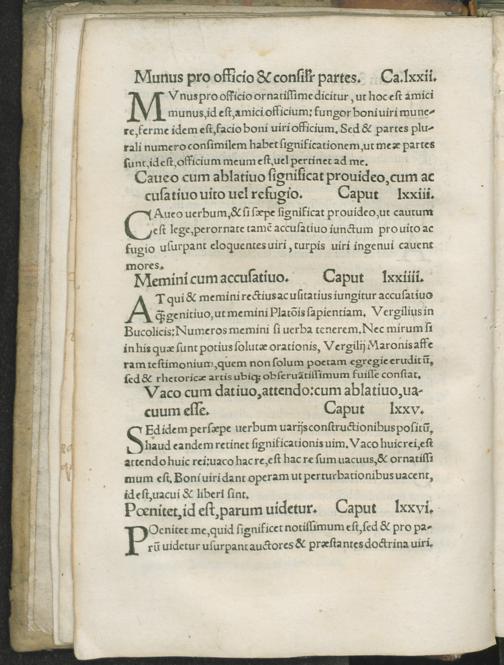 Munus pro officio & consilr partes. Ca.lxxii.
MVnus pro officio ornatissime dicitur, ut hoc est amici
munus, id est, amici officium: fungor boni uiri mune-
re, ferme idem est, facio boni uiri officium. Sed & partes plu-
rali numero consimilem habet significationem, ut meæ partes
sunt, id est, officium meum est, uel pertinet ad me.
Caueo cum ablatiuo significat prouideo, cum ac
cusatiuo uito uel refugio. Caput lxxiii.
CAueo uerbum, & si sæpe significat prouideo, ut cautum
est lege, perornate tamē accusatiuo iunctum pro uito ac
fugio usurpant eloquentes uiri, turpis uiri ingenui cauent
mores.
Memini cum accusatiuo. Caput lxxiiii.
AT qui & memini rectius ac usitatius iungitur accusatiuo
q̃ genitiuo, ut memini Platōis sapientiam. Vergilius in
Bucolicis: Numeros memini si uerba tenerem. Nec mirum si
in his quæ sunt potius solutæ orationis, Vergilij Maronis affe
ram testimonium, quem non solum poetam egregie eruditū,
sed & rhetoricæ artis ubiq; obseruātissimum fuisse constat.
Vaco cum datiuo, attendo: cum ablatiuo, ua-
cuum esse. Caput lxxv.
SEd idem persæpe uerbum uarijs constructionibus positū,
haud eandem retinet significationis uim. Vaco huic rei, est
attendo huic rei: uaco hac re, est hac re sum uacuus, & ornatissi
mum est. Boni uiri dant operam ut perturbationibus uacent,
id est, uacui & liberi sint.
Pœnitet, id est, parum uidetur. Caput lxxvi.
POenitet me, quid significet notissimum est, sed & pro pa-
rū uidetur usurpant auctores & præstantes doctrina uiri.